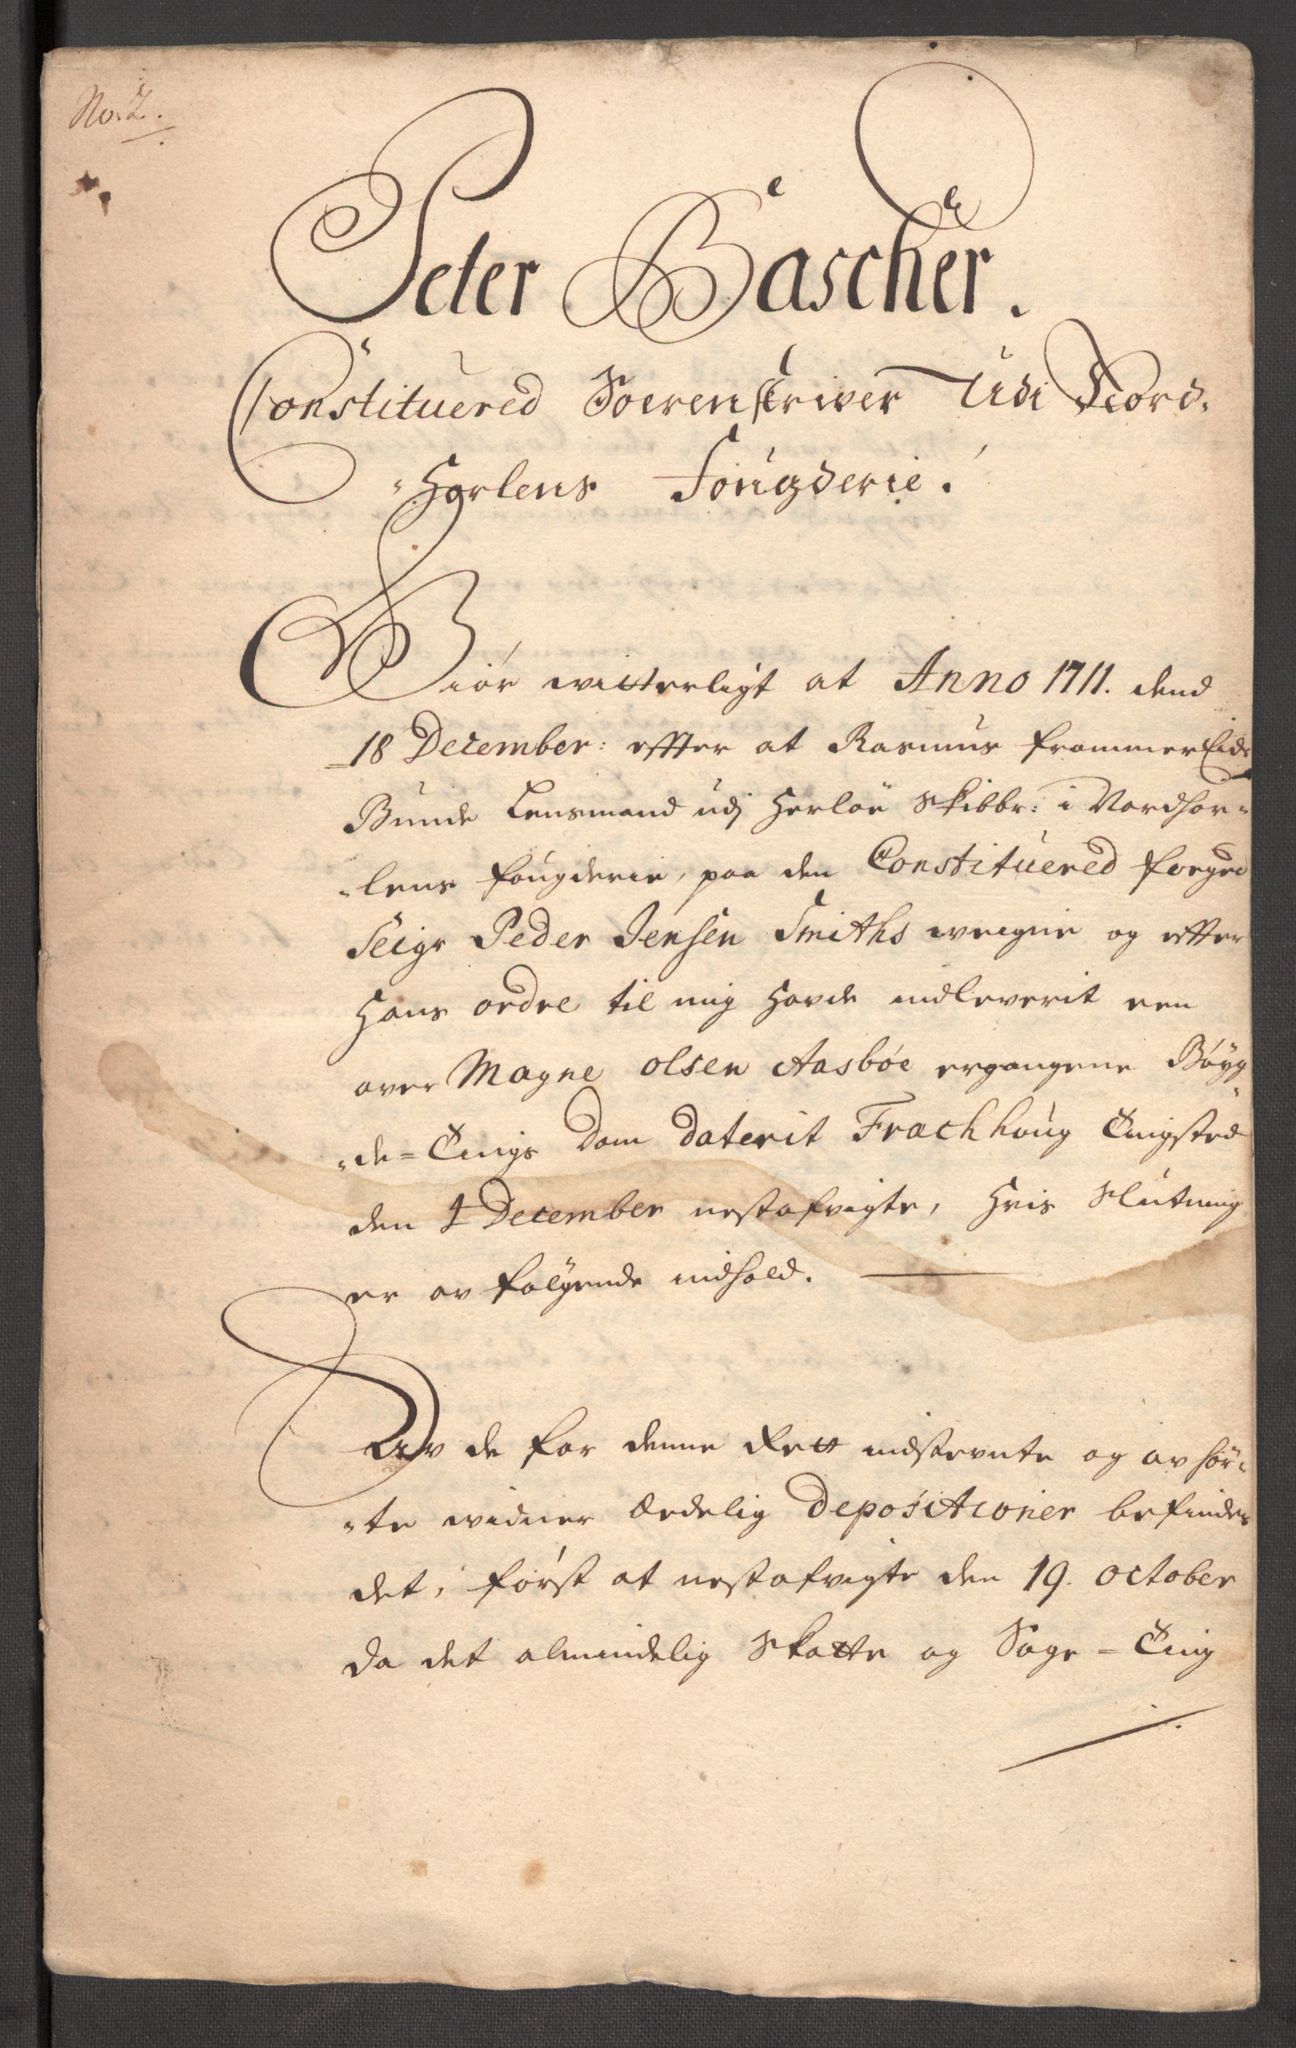 No. 2.
Peter Bascher.
Constituered Soerenskriver Udi Nord-
Horlens Fougderie.
Giör witterligt at Anno 1711. dend
18 December: effter at Rasmus Frommer Eide
Bunde Lensmand udj Herlöe Skibbr: i Nordhor-
lens fougderie, paa den Constituered foeged
Seigr Peder Jensen Smiths weigne og effter
Hans ordre til mig Hafde indleverit een
over Magne olsen Aasböe ergangene Böyg-
de-Tings dom daterit Frachhoug Tingsted
den 4 December nestafvigte, Hvis Slutning
er av fölgende indhold.
Av de for denne Rett indstevnte og av hör-
te widner Ædelig Depositioner befindes
det, först at nestafvigte den 19. october
da det almindelig Skatte og Sage-Ting